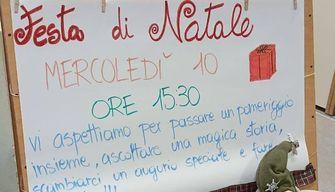 Festa di Natale
MERCOLEDÌ 10
ORE 15.30
vi aspettiamo per passare un pomeriggio
insieme, ascoltare una magica storia,
scambiarci un augurio speciale e fare
!!!